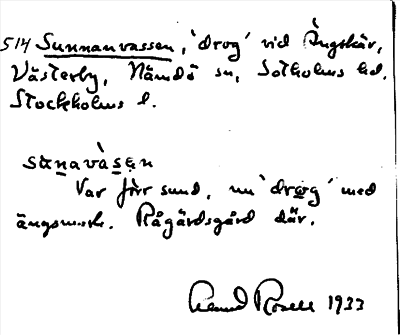 514 Sunnanvassen, 'drog' vid Ängskär,
Västerby, Nämdö sn, Sotholms hd.
Stockholms l.
sùnavàsen
Var förr sund, nu 'drog' med
ängsmark. Rågårdsgård där.
1933